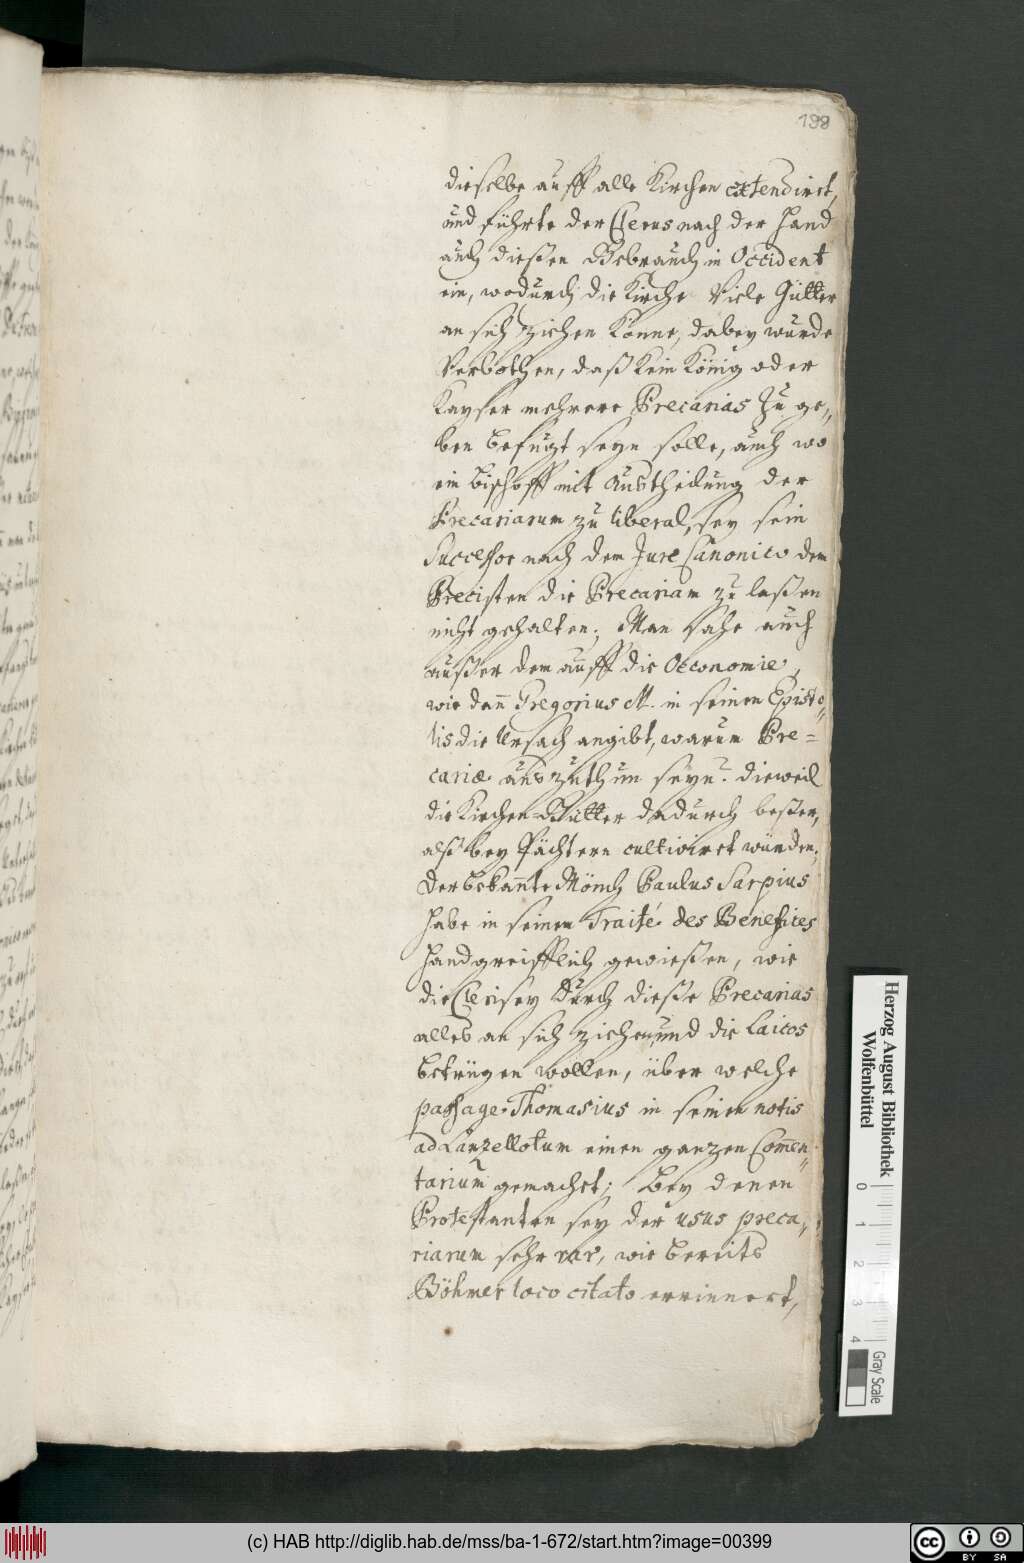 199
dieselbe auff alle Kirchen extendiret,
und führte der Clerus nach der Hand
auch dießen Gebrauch in Occident
ein, wodurch die Kirche viele Gütter
an sich ziehen könne, dabey wurde
verbothen, daß kein König oder
Kayser mehrere Precarias zu ge„
ben befugt seyn solle, auch wo
ein Bischoff mit Austheilung der
Precariarum zu liberal, sey sein
Successor nach dem Jure Canonico dem
Precisten die Precariam zu laßen
nicht gehalten; Man sahe auch
außer dem auff die Oeconomie,
wie dan̄ Gregorius M. in seinen Episto„
lis die Ursach angibt, warum Pre=
cariæ auszuthun seyn. dieweil
die Kirchen-Gütter dadurch beßer,
alß bey Pächtern cultiviret würden;
Der bekan̄te Mönch Paulus Sarpius
habe in seinem Traité des Benefices
handgreifflich gewießen, wie
die Clerisey durch dieße Precarias
alles an sich ziehen, und die Laicos
betrügen wollen, über welche
passage Thomasius in seinen notis
ad Lanzellotum einen ganzen Com̄en„
tarium gemachet; Bey denen
Protestanten sey der usus preca„
riarum sehr rar, wie bereits
Böhmer loco citato errinnert,
Herzog August Bibliothek
Wolfenbüttel
0 1 2 3 4
Gray Scale
(c) HAB http://diglib.hab.de/mss/ba-1-672/start.htm?image=00399
cc BY SA